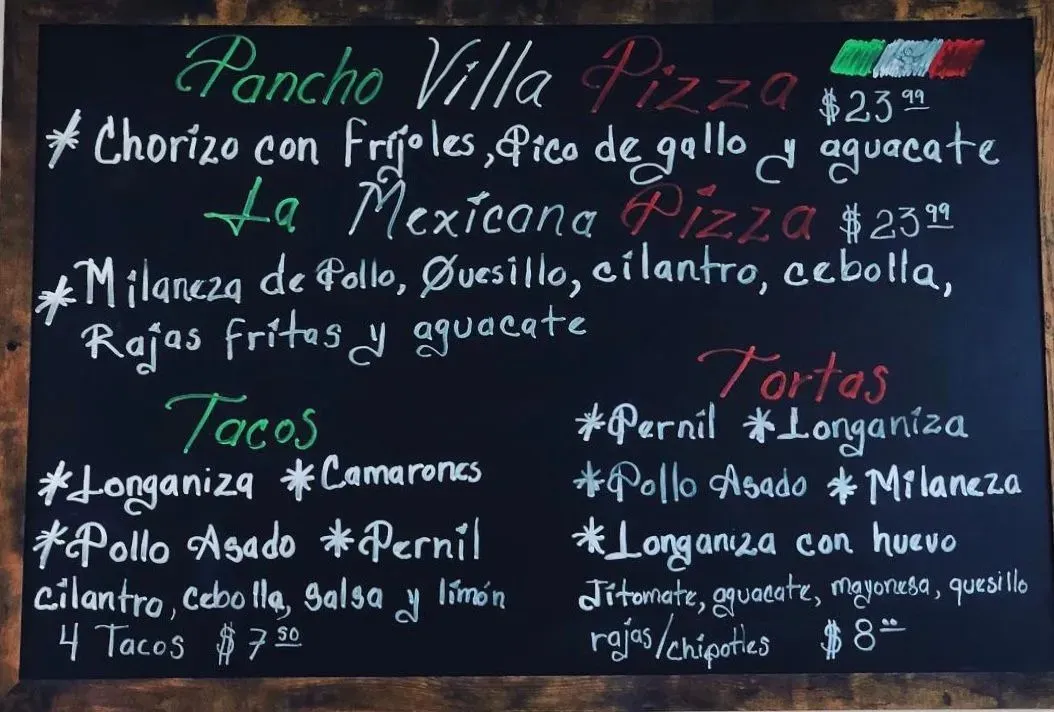 Pancho Villa Pizza
$23.99
* Chorizo con frijoles, Pico de gallo y aguacate
La Mexicana Pizza $23.99
* Milaneza de Pollo, Quesillo, cilantro, cebolla,
Rajas fritas y aguacate
Tacos
* Longaniza * Camarones
* Pollo Asado * Pernil
cilantro, cebolla, salsa y limón
4 Tacos $7.50
Tortas
* Pernil * Longaniza
* Pollo Asado * Milaneza
* Longaniza con huevo
Jitomate, aguacate, mayonesa, quesillo
rajas/chipotles $8.00